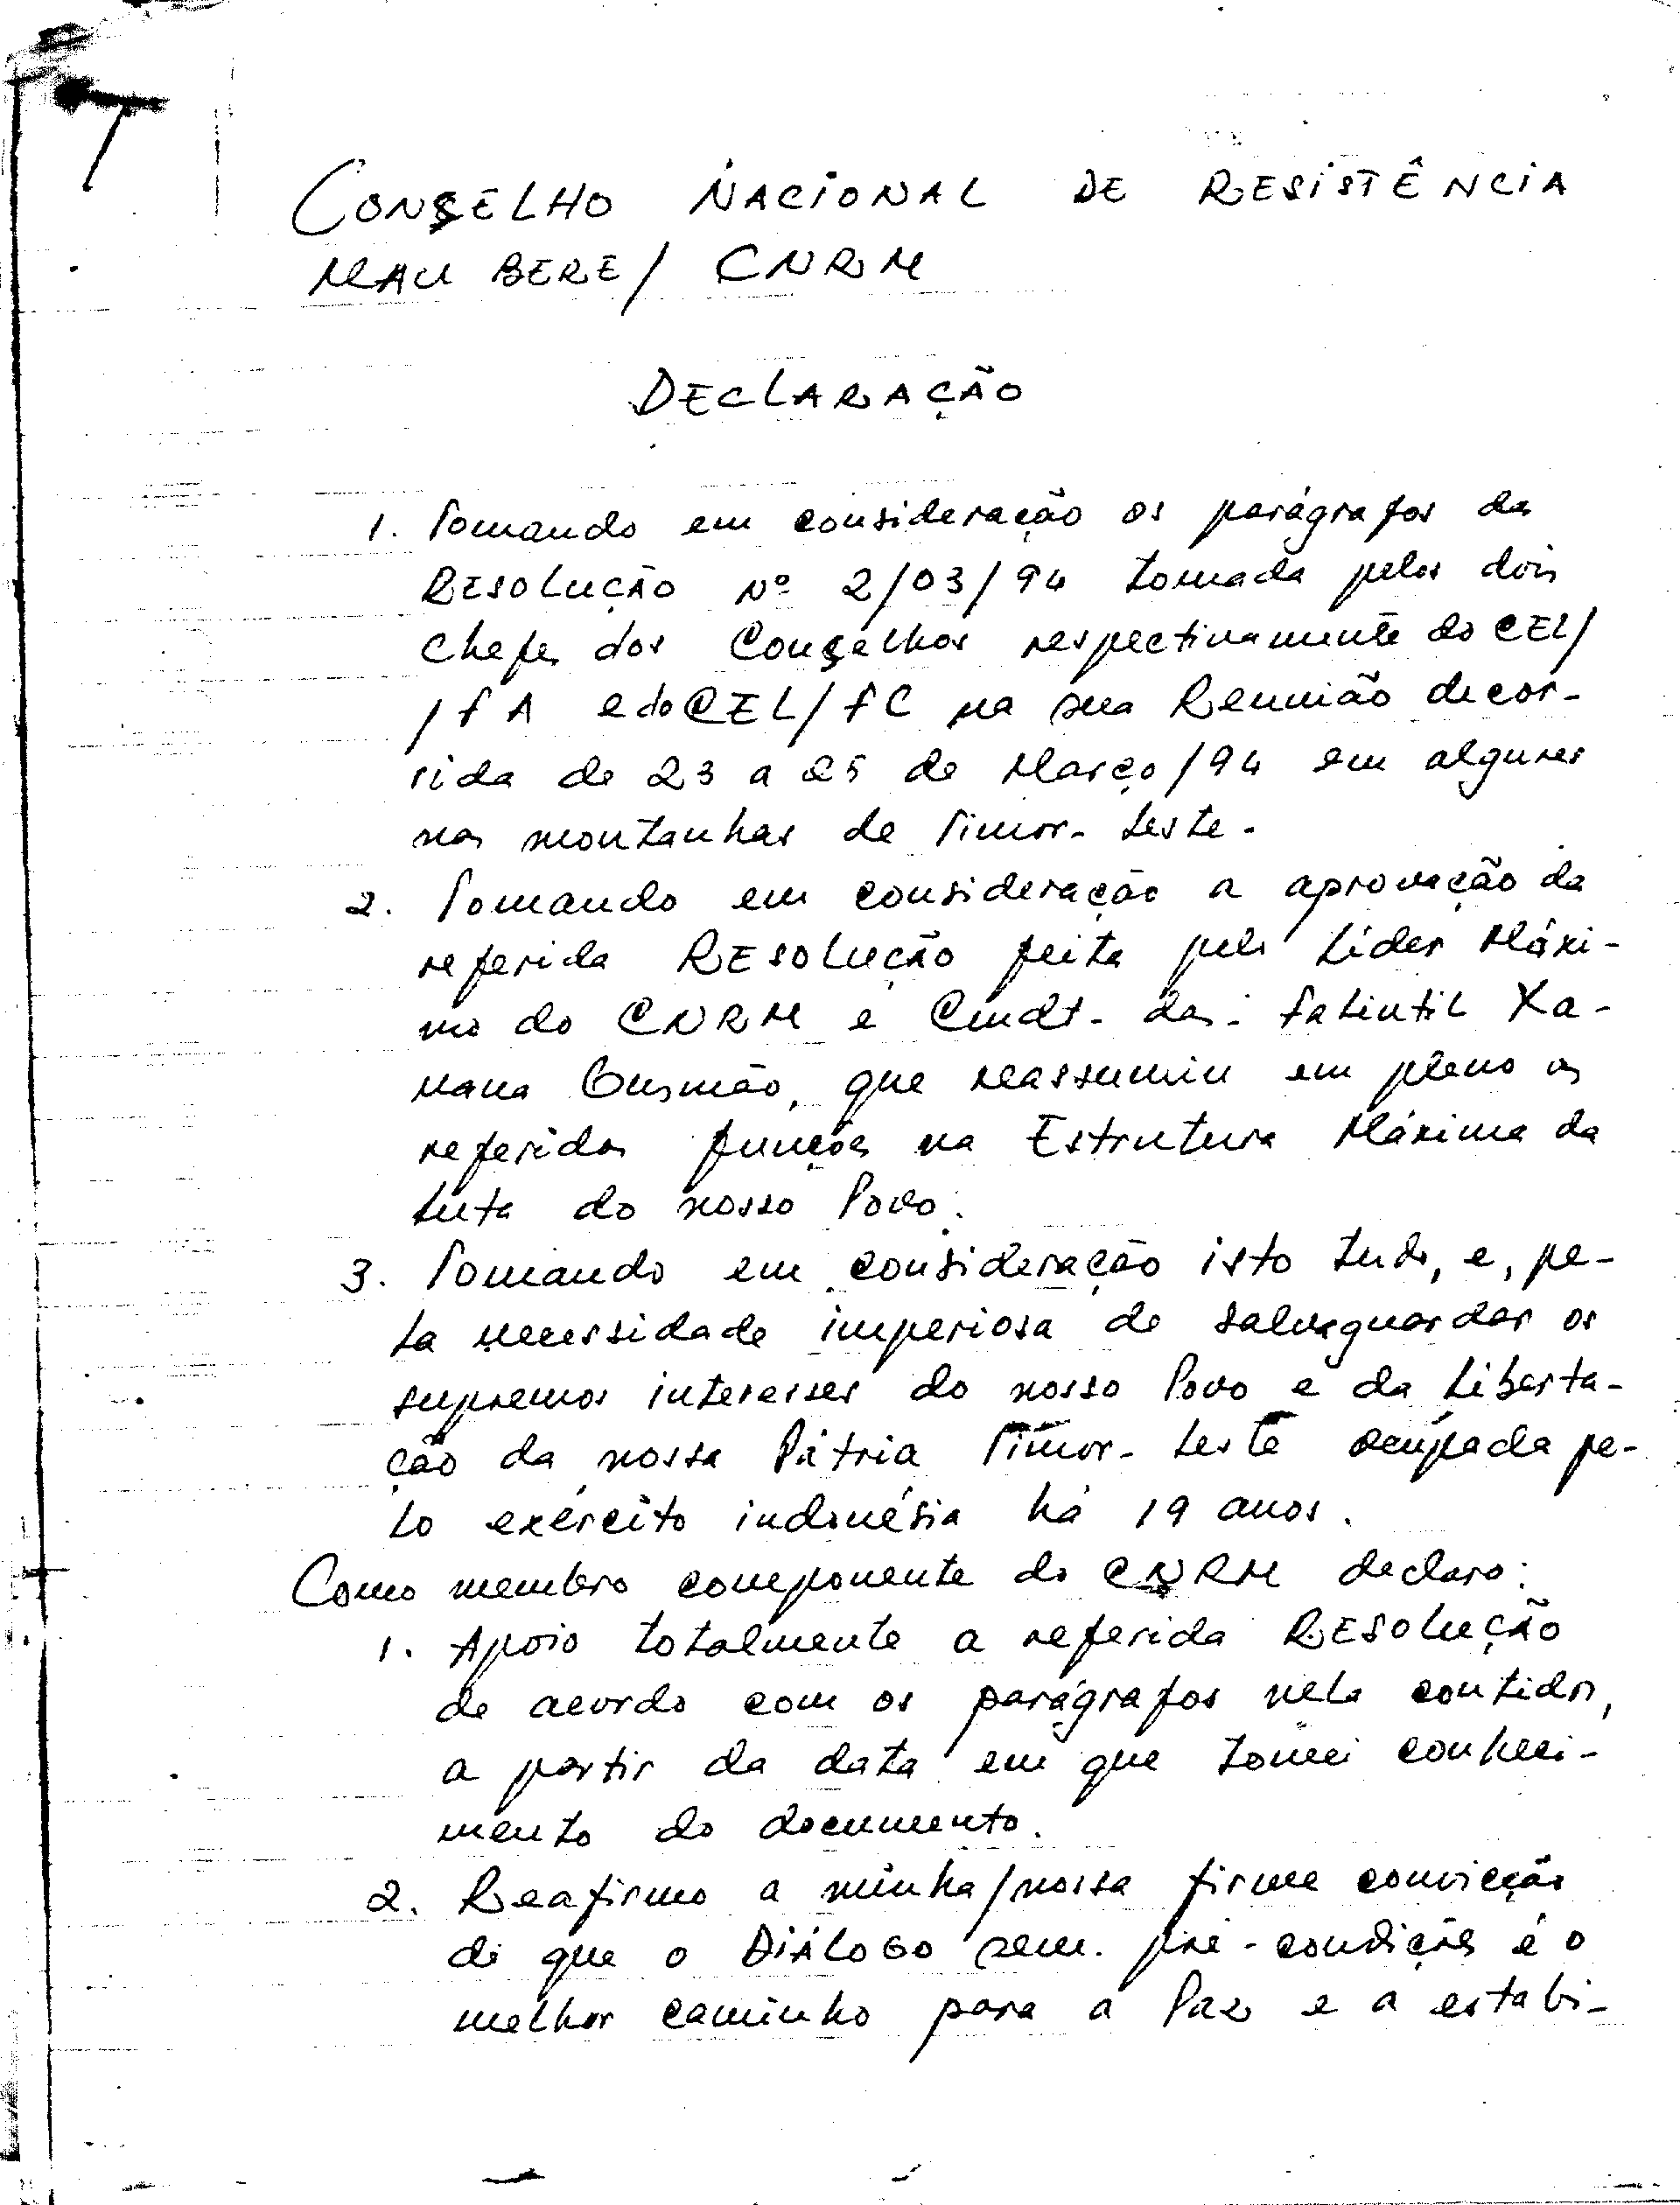 CONSELHO NACIONAL DE RESISTÊNCIA
MAUBERE / CNRM
DECLARAÇÃO
1. Tomando em consideração os parágrafos da
RESOLUÇÃO Nº 2/03/94 tomada pelos dois
chefes dos Conselhos respectivamente do CEL/
/FA e do CEL/FC na sua Reunião decor-
rida de 23 a 25 de Março/94 em algures
nas montanhas de Timor-Leste.
2. Tomando em consideração a aprovação da
referida RESOLUÇÃO feita pelo Líder Máxi-
mo do CNRM e Cmdt. das Falintil Xa-
nana Gusmão, que reassumiu em pleno as
referidas funções na Estrutura Máxima da
Luta do nosso Povo.
3. Tomando em consideração isto tudo, e, pe-
la necessidade imperiosa de salvaguardar os
supremos interesses do nosso Povo e da Liberta-
ção da nossa Pátria Timor-Leste ocupada pe-
lo exército indonésia há 19 anos.
Como membro componente do CNRM declaro:
1. Apoio totalmente a referida RESOLUÇÃO
de acordo com os parágrafos nela contidos,
a partir da data em que tomei conheci-
mento do documento.
2. Reafirmo a minha/nossa firme convicção
de que o DIÁLOGO sem pré-condições é o
melhor caminho para a Paz e a estabi-